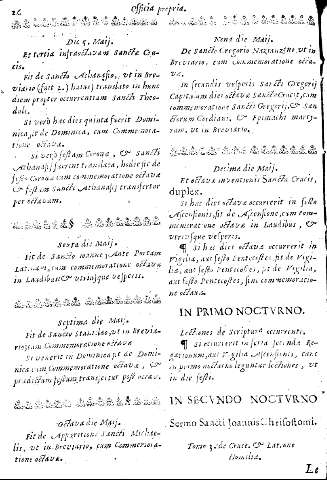 26
Officia propria.
Die 5. Maij.
Et tertia infraoctavam Sanctæ Cru-
cis.
Fit de Sancto Athanasio, ut in Bre-
viario
translato in hunc
diem propter occurrentiam Sanctæ
Si verò hæc dies quinta fuerit Domi-
nica, fit de Dominica, cum Commemo-
octavæ.
Si verò festum Coronæ, & Sancti
Athanasij fuerint translata, hodie fit de
festo Coronæ cum commemoratione octavæ
& festum Sancti Athanasij transfertur
per octavam.
Sexta die Maij.
Fit de Sancto Ioanne Ante Portam
Latinam, cum commemoratione octavæ
in Laudibus & utrisque vesperis.
Septima die Maij.
Fit de Sancto Stanislao, ut in Brevia-
rio, cum Commemoratione octavæ
Si venerit in Dominica fit de Domi-
nica cum Commemoratione octavæ, &
prædictum festum transfertur post octavam.
Octava die Maij.
Fit de Apparitione Sancti Michae-
lis, ut in Breviario, cum Commemora-
tione octavæ.
Nona die Maij.
De Sancto Gregorio Nazanzeno ut in
Breviario, cum Commemoratione octa-
væ.
In secundis vesperis Sancti Gregorij
Capitulum diei octavæ Sanctæ Crucis, cum
commemoratione Sancti Gregorij, & San-
ctorum Gordiani, & Epimachi marty-
rum, ut in Breviario.
Decima die Maij.
Et octava inventionis Sanctæ Crucis,
duplex.
Si hæc dies octavæ occurrerit in festo
Ascensionis, fit de Ascensione, cum com-
memoratione octavæ in Laudibus, &
utrisque vesperis.
¶ Si hæc dies octavæ occurrerit in
Vigilia, aut festo Pentecostes, fit de Vigi-
lia, aut festo Pentecostes,
aut festo Pentecostes, sine commemoratio-
ne octavæ.
IN PRIMO NOCTVRNO.
Lectiones de Scriptura occurrente.
¶ Si occurrerit in feria secunda Ro-
gationum, aut Vigilia Ascensionis, tunc
in primo nocturno leguntur lectiones, ut
in die festo.
IN SECVNDO NOCTVRNO
Sermo Sancti Joannis Chrisostomi.
Tomo 3. de Cruce, & Latrone
Homilia.
Le